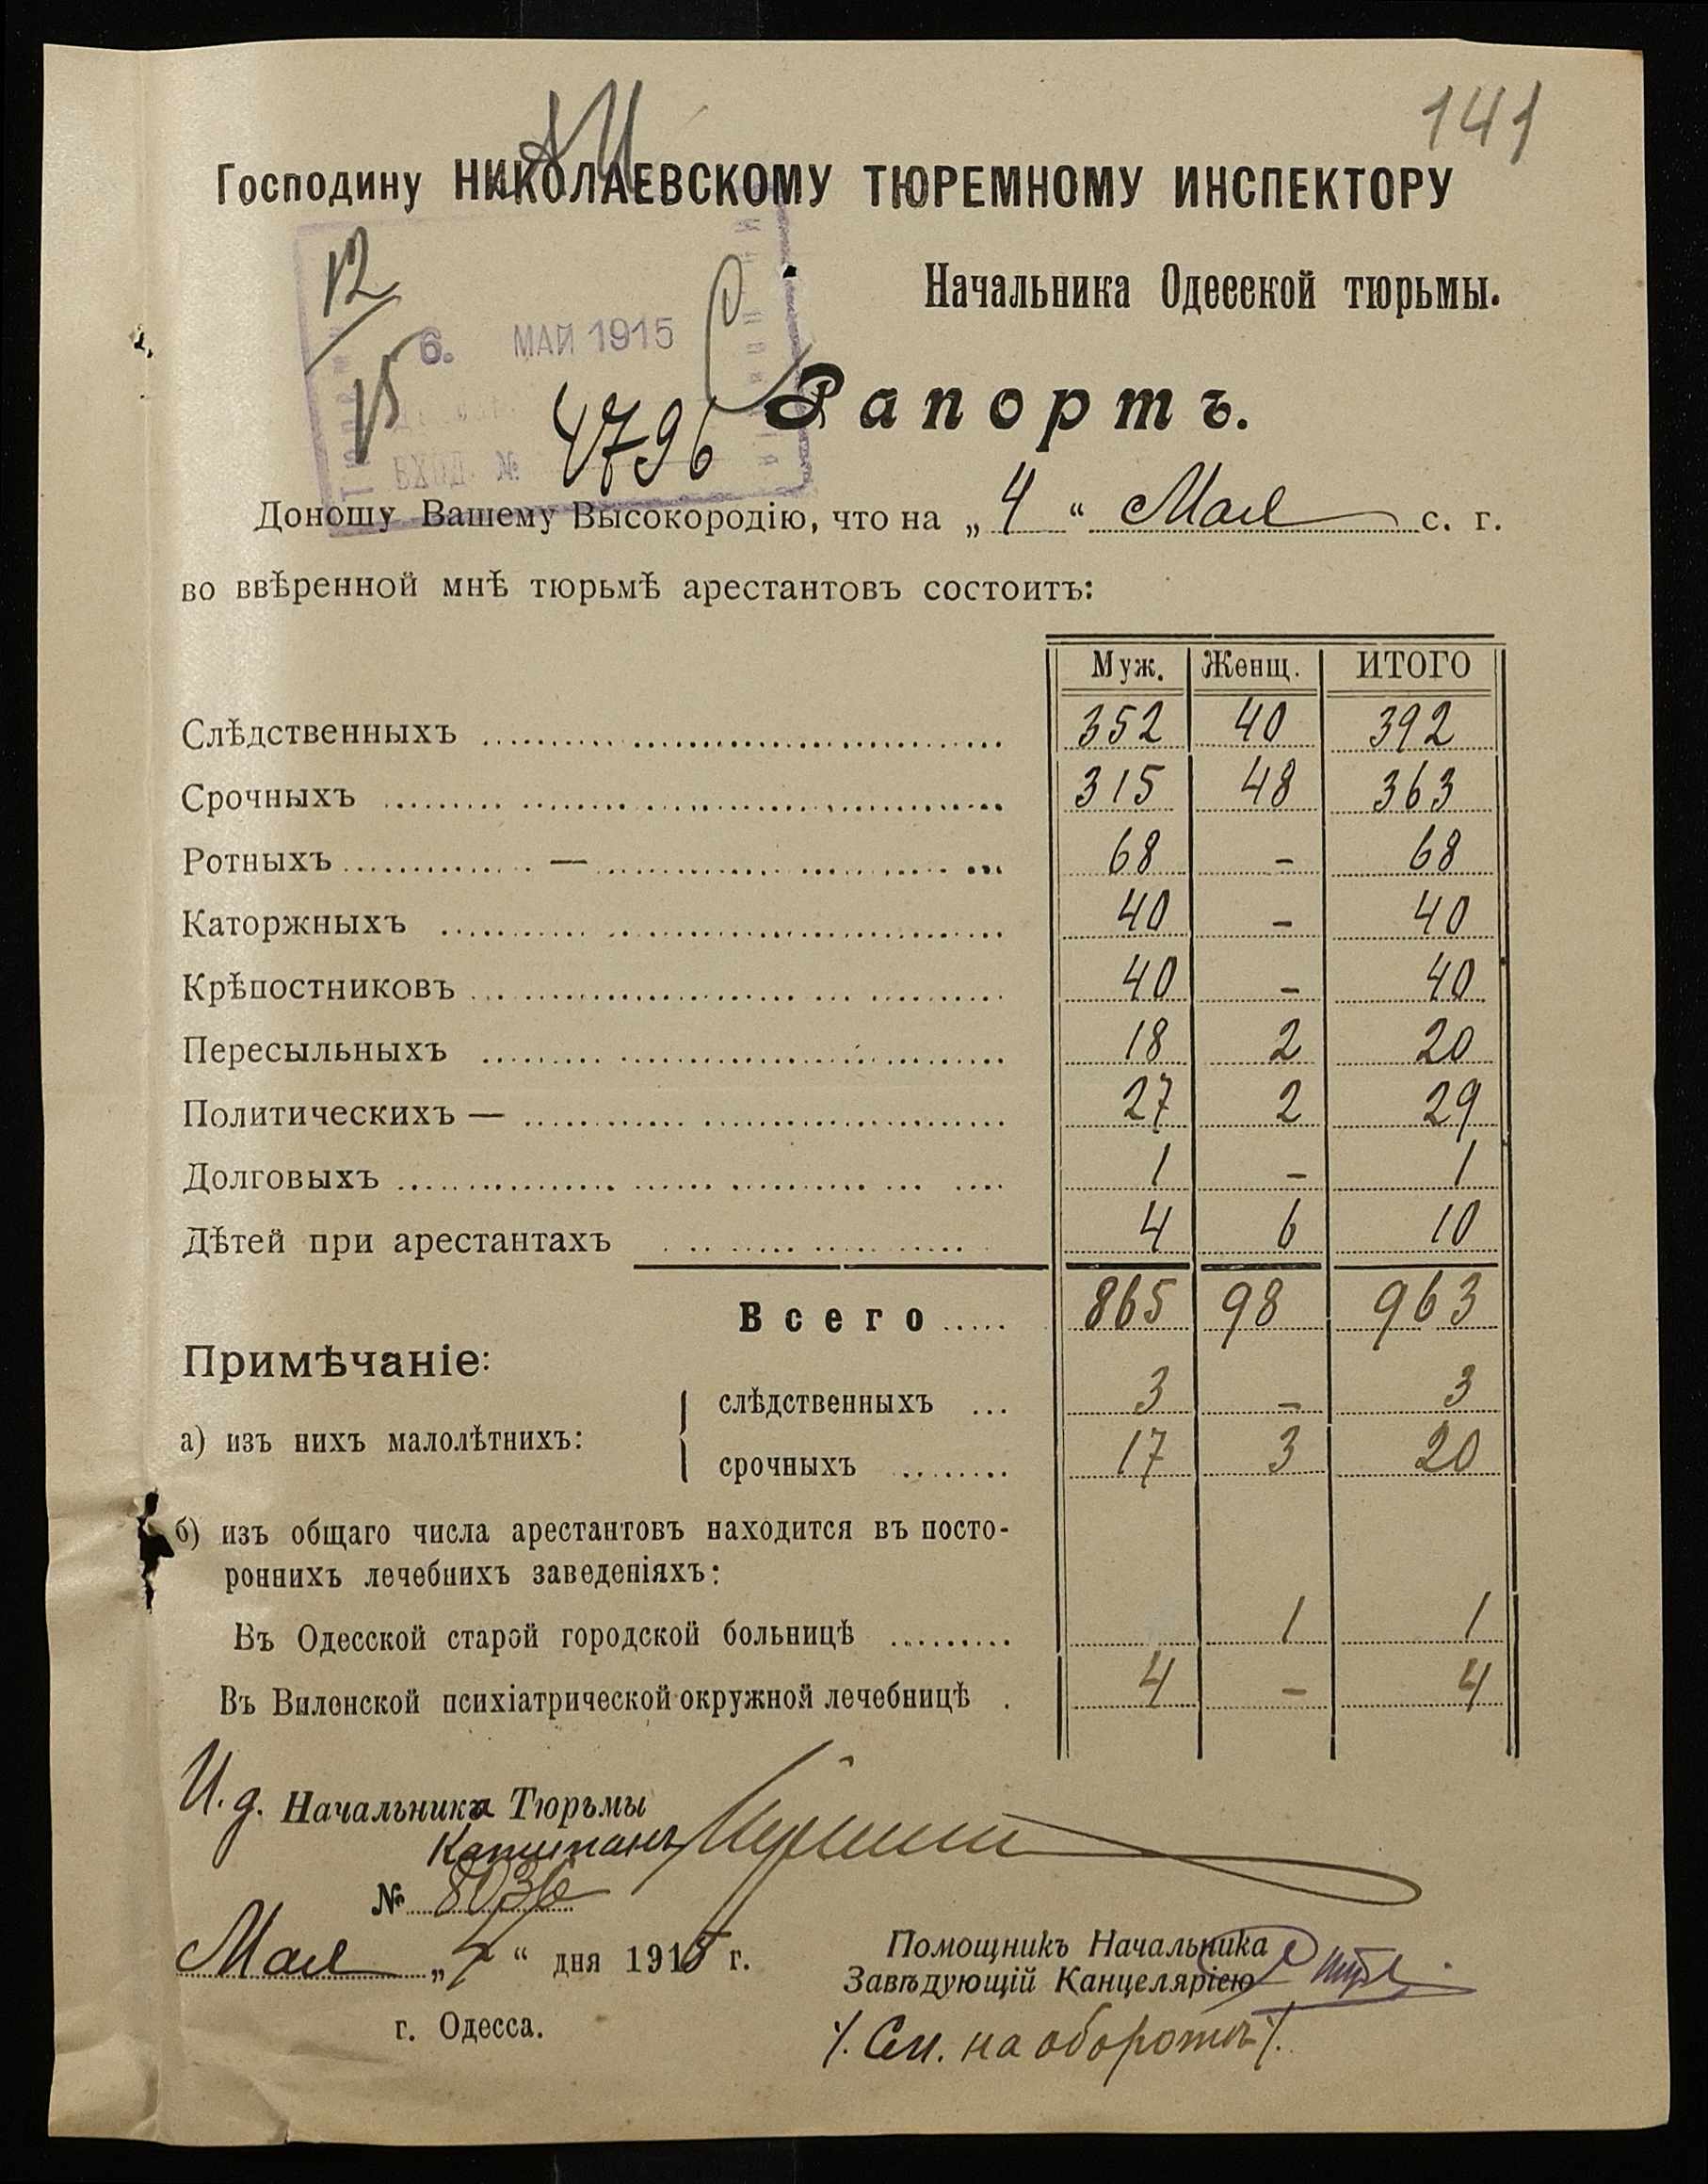 141
Господину НИКОЛАЕВСКОМУ ТЮРЕМНОМУ ИНСПЕКТОРУ
Начальника Одесской тюрьмы.
12/15
6. МАЙ 1915
ВХОД. № 4796
Рапортъ.
Доношу Вашему Высокородію, что на „4“ Мая с. г.
во ввѣренной мнѣ тюрьмѣ арестантовъ состоитъ:
Муж. Женщ. ИТОГО
Слѣдственныхъ 352 40 392
Срочныхъ 315 48 363
Ротныхъ — 68 - 68
Каторжныхъ 40 - 40
Крѣпостниковъ 40 - 40
Пересыльныхъ 18 2 20
Политическихъ — 27 2 29
Долговыхъ 1 - 1
Дѣтей при арестантахъ 4 6 10
Всего 865 98 963
Примѣчаніе:
а) изъ нихъ малолѣтнихъ: слѣдственныхъ 3 - 3
срочныхъ 17 3 20
б) изъ общаго числа арестантовъ находится въ посто-
роннихъ лечебнихъ заведеніяхъ:
Въ Одесской старой городской больницѣ 1 1
Въ Виленской психіатрической окружной лечебницѣ 4 - 4
И. д. Начальника Тюрьмы
Капитанъ
№ 8036
Мая „4“ дня 1915 г.
г. Одесса.
Помощникъ Начальника
Завѣдующій Канцеляріею
/. См. на оборотѣ /.